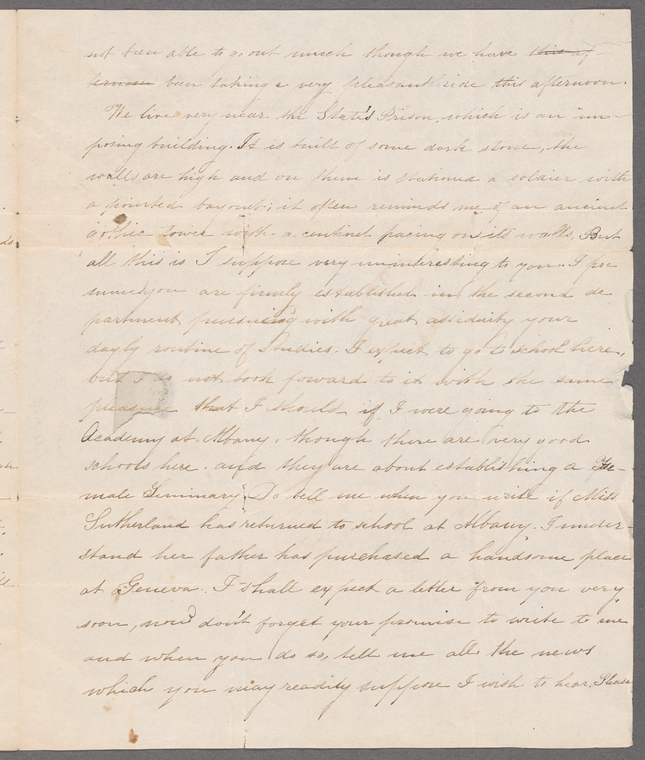 not been able to go out much though we have this af
ternoon been taking a very pleasant ride this afternoon.
We live very near the State's Prison, which is an im-
posing building. It is built of some dark stone, the
walls are high and on them is stationed a soldier with
a pointed bayonet; it often reminds me of an ancient
Gothic tower with a centinel pacing on its walls. But
all this is I suppose very uninteresting to you. I pre
sume you are firmly established in the second de
partment pursueing with great assiduity your
dayly routine of Studies. I expect to go to school here,
but I do not look foward to it with the same
pleasure that I should if I were going to the
Academy at Albany, though there are very good
schools here. and they are about establishing a Fe-
male Seminary. Do tell me when you write if Miss
Sutherland has returned to school at Albany. I under-
stand her father has purchased a handsome place
at Geneva. I shall expect a letter from you very
soon, now don't forget your promise to write to me
and when you do so, tell me all the news
which you may readily suppose I wish to hear. Please